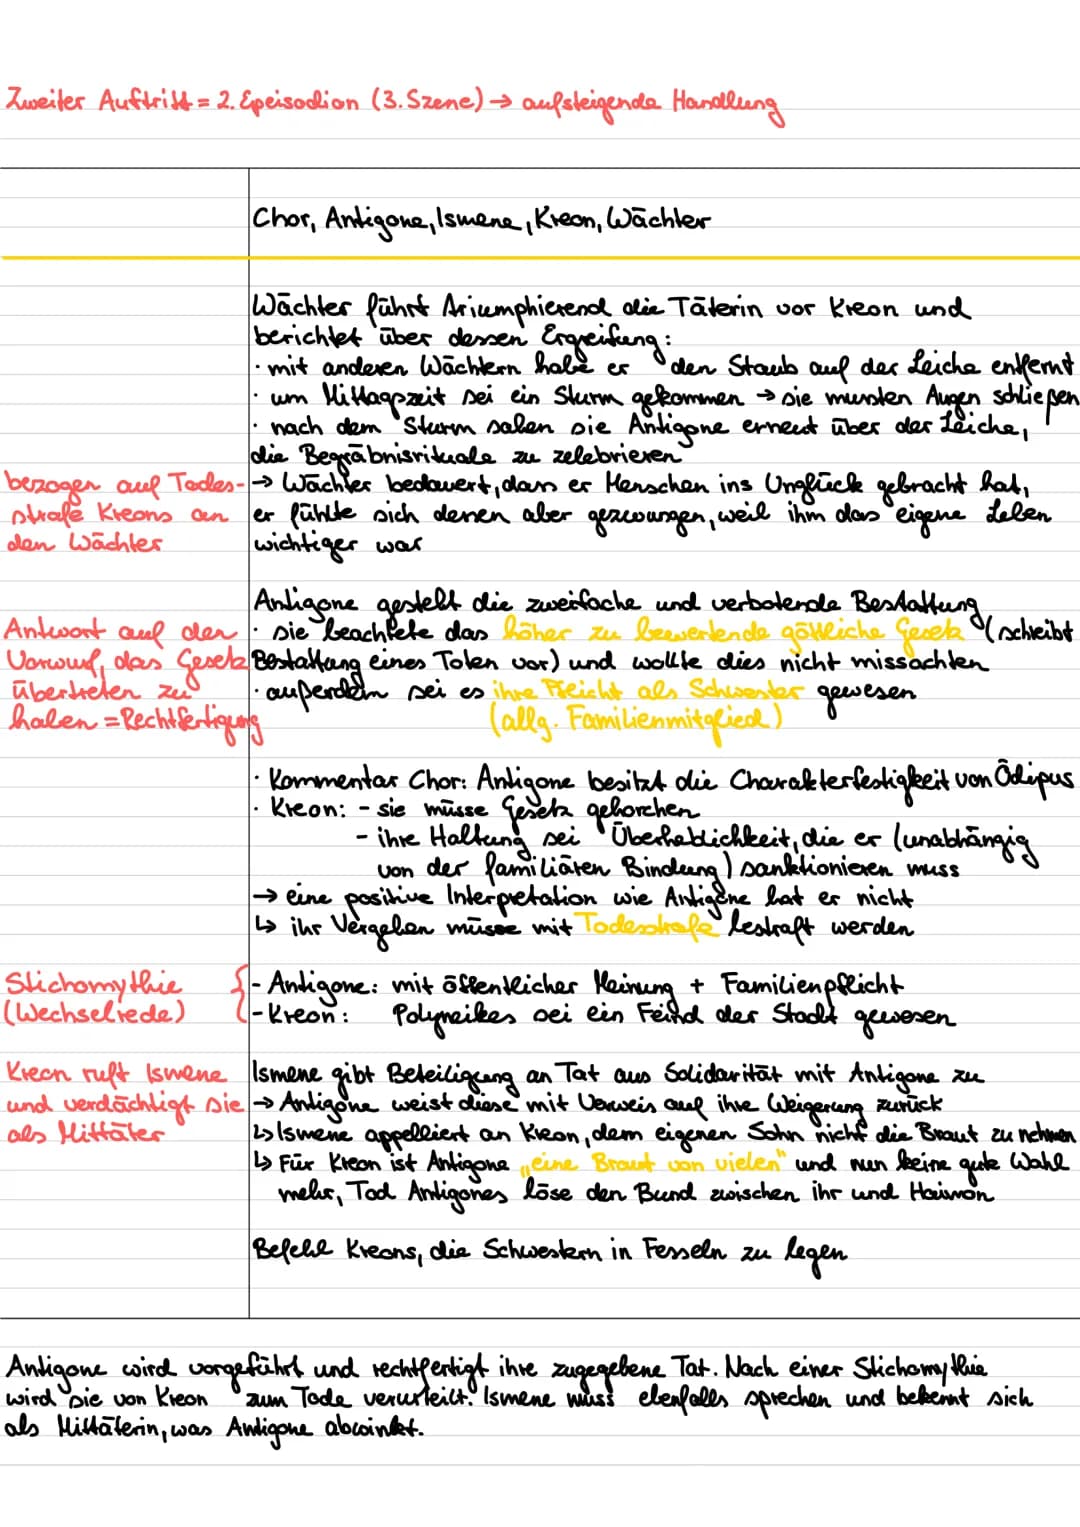 Zweiter Auftritt = 2. Epeisodion (3. Szene) → aufsteigende Handlung
Chor, Antigone, Ismene, Kreon, Wächter
Wächter führt triumphierend die Täterin vor Kreon und
berichtet über dessen Ergreifung:
· mit anderen Wächtern habe er den Staub auf der Leiche entfernt
· um Mittagszeit sei ein Sturm gekommen → sie mussten Augen schließen
· nach dem Sturm sahen sie Antigone erneut über der Leiche,
die Begräbnisrituale zu zelebrieren
bezogen auf Todes-
strafe Kreons an
den Wächter
→ Wächter bedauert, dass er Menschen ins Unglück gebracht hat,
er fühlte sich dessen aber gezwungen, weil ihm das eigene Leben
wichtiger war
Antigone gesteht die zweifache und verbotende Bestattung
Antwort auf den
Vorwurf, das Gesetz
übertreten zu
haben = Rechtfertigung
· sie beachtete das höher zu bewertende göttliche Gesetz (schreibt
Bestattung eines Toten vor) und wollte dies nicht missachten
· außerdem sei es ihre Pflicht als Schwester gewesen
(allg. Familienmitglied)
· Kommentar Chor: Antigone besitzt die Charakterfestigkeit von Ödipus
· Kreon: - sie müsse Gesetz gehorchen
- ihre Haltung sei Überheblichkeit, die er (unabhängig
von der familiären Bindung) sanktionieren muss
→ eine positive Interpretation wie Antigone hat er nicht
↳ ihr Vergehen müsse mit Todesstrafe bestraft werden
Stichomythie
(Wechselrede)
- Antigone: mit öffentlicher Meinung + Familienpflicht
- Kreon: Polyneikes sei ein Feind der Stadt gewesen
Kreon ruft Ismene
und verdächtigt sie
als Mittäter
Ismene gibt Beteiligung an Tat aus Solidarität mit Antigone zu
→ Antigone weist diese mit Verweis auf ihre Weigerung zurück
↳ Ismene appelliert an Kreon, dem eigenen Sohn nicht die Braut zu nehmen
↳ Für Kreon ist Antigone „eine Braut von vielen" und nun keine gute Wahl
mehr, Tod Antigones löse den Bund zwischen ihr und Haimon
Befehl Kreons, die Schwestern in Fesseln zu legen
Antigone wird vorgeführt und rechtfertigt ihre zugegebene Tat. Nach einer Stichomythie
wird sie von Kreon zum Tode verurteilt. Ismene muss ebenfalls sprechen und bekennt sich
als Mittäterin, was Antigone abwinkt.